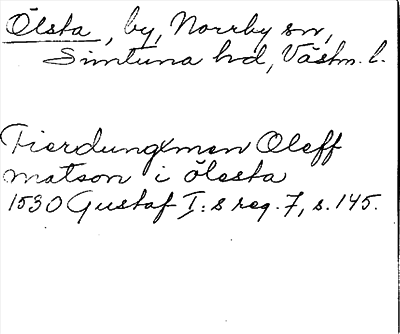 Ölsta, by, Norrby sn,
Simtuna hd, Västm. l.
Fierdungxmen Oleff
matson i ölesta
1530 Gustaf I:s reg. 7, s. 145.